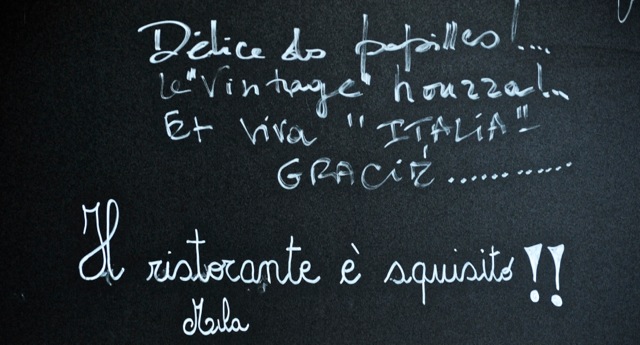 Délice des papilles !....
le "Vintage" houzza !..
Et viva "ITALIA"
GRACIE ............
Il ristorante è squisito !!